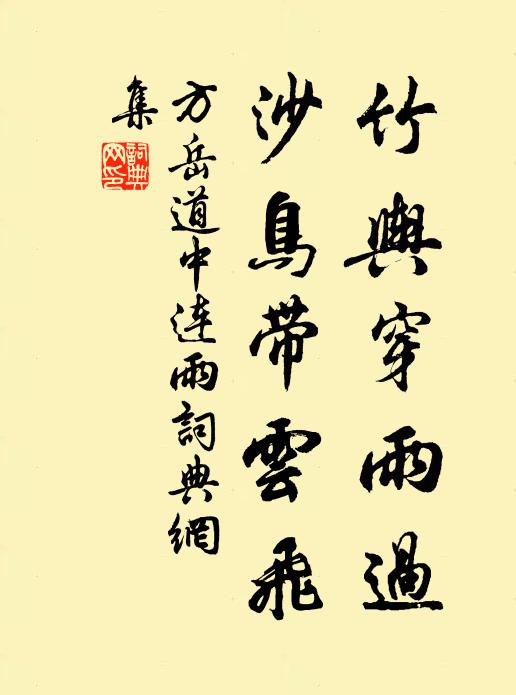 竹輿穿雨過
沙鳥帶雲飛
方岳道中連雨詞典網
集
詞典網印